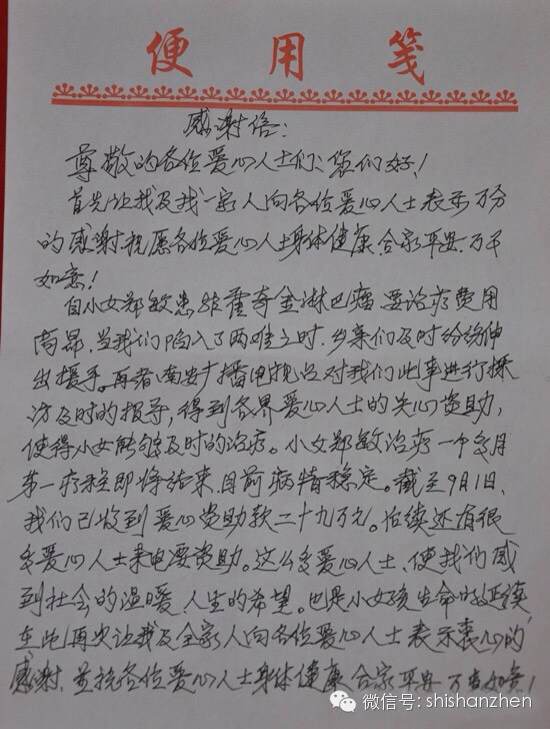 便用笺
感谢信:
尊敬的各位爱心人士们:您们好!
首先让我及我一家人向各位爱心人士表示万分
的感谢,祝愿各位爱心人士身体健康.合家平安.万事
如意!
自小女郑敏患非霍奇金淋巴瘤要治疗费用
高昂.当我们陷入了两难之时.乡亲们及时纷纷伸
出援手。再者.南安广播电视台对我们此事进行採
访及时的报导,得到各界爱心人士的关心资助,
使得小女能够及时的治疗。小女郑敏治疗一个多月
第一疗程即将结束.目前病情稳定。截至9月1日.
我们已收到爱心资助款二十九万元。后续还有很
多爱心人士来电要资助。这么多爱心人士、使我们感
到社会的温暖.人生的希望。也是小女孩生命的延续
在此再次让我及全家人向各位爱心人士表示衷心的
感谢.并祝各位爱心人士身体健康 合家平安 万事如意!
微信号: shishanzhen